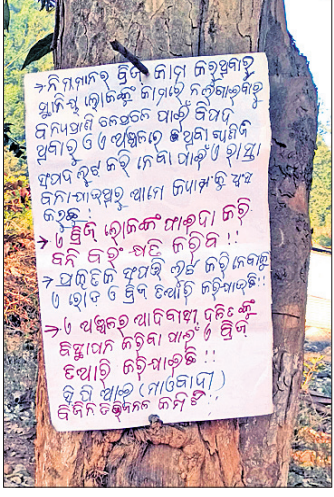 → ନିମ୍ନମାନର ବ୍ରିଜ୍ କାମ କରୁଥିବାରୁ
ସ୍ଥାନିୟ ଲୋକଙ୍କୁ କାମରେ ନ ଲଗାଇବାରୁ
ବନ୍ୟପ୍ରାଣୀ ପାଇଁ ବିପଦ
ଥିବାରୁ ଏ ଅଞ୍ଚଳରେ ଥିବା
ସଂପଦ ଲୁଟ କରି ନେବା ପାଇଁ ଏ ରାସ୍ତା
ଆମେ କ୍ୟାମ୍ପକୁ
କରୁଛୁ !
→ ଏ ବ୍ରିଜ୍ ଲୋକଙ୍କ ଫାଇଦା କରି
ବନି ବରଂ କ୍ଷତି କରିବ !!
→ ପ୍ରକୃତିକ ସଂପତ୍ତି ଲୁଟ କରି ନେବାକୁ
ଏ ରୋଡ ଏ ବ୍ରିଜ ତିଆରି କରାଯାଇଛି !!
→ ଏ ଅଞ୍ଚଳର ଆଦିବାସୀ ଦଳିତଙ୍କୁ
ବିସ୍ଥାପନ କରିବା ପାଇଁ ଏ ବ୍ରିଜ୍
ତିଆରି କରାଯାଇଛି !!
ସି ପି ଆଇ (ମାଓବାଦୀ)
ଡିଭିଜନାଲ କମିଟି !!